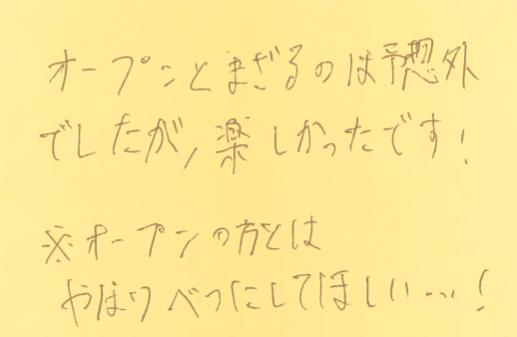 オープンとまざるのは予想外
でしたが、楽しかったです！
※オープンの方とは
やはりべつにしてほしい…！